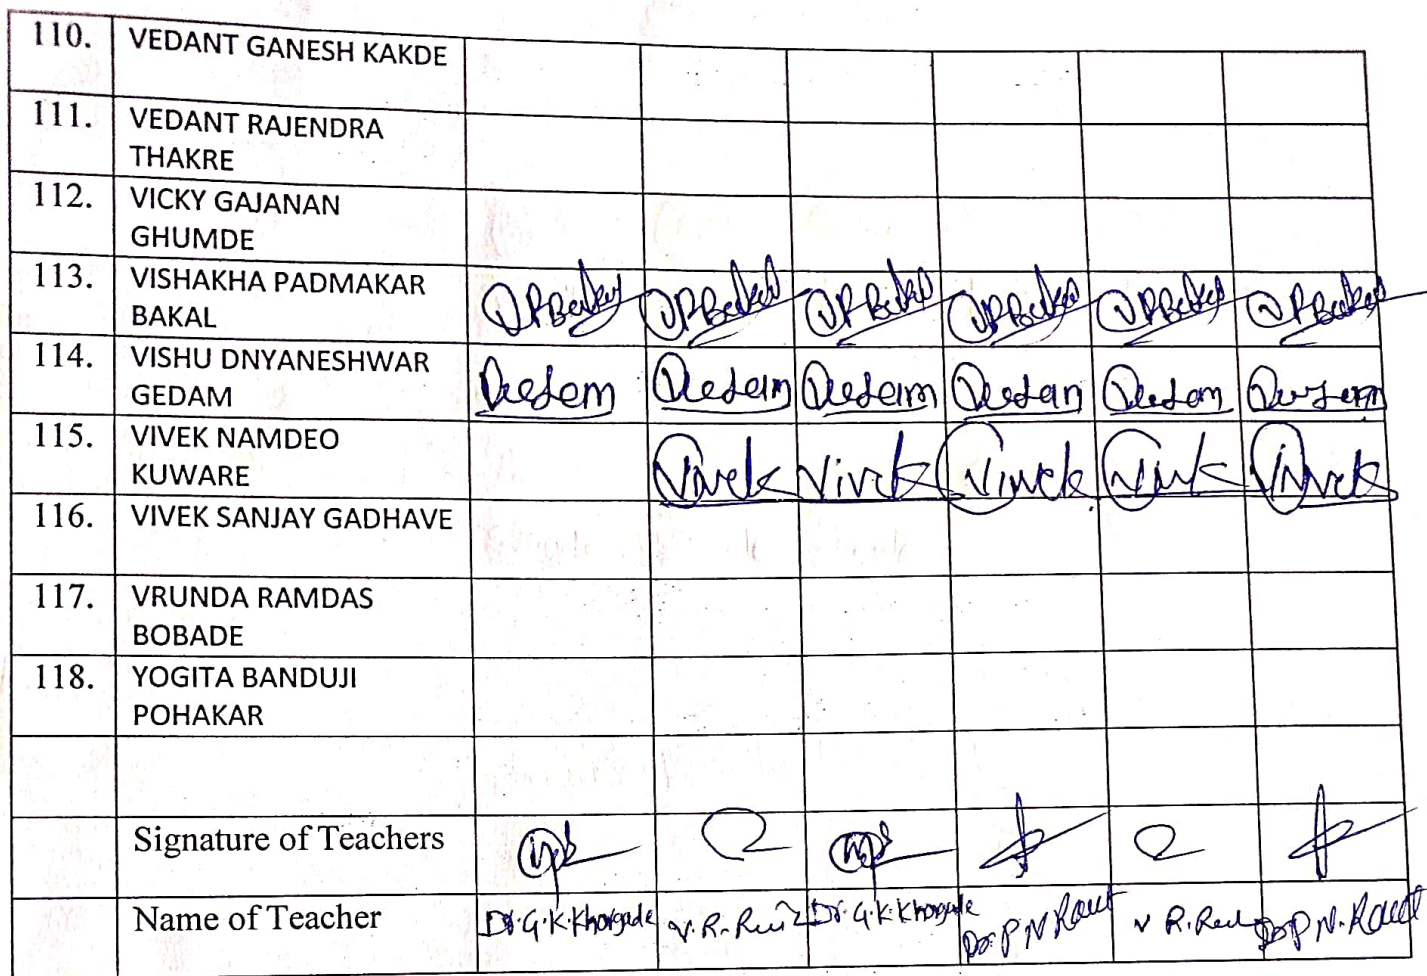 110. VEDANT GANESH KAKDE
111. VEDANT RAJENDRA
THAKRE
112. VICKY GAJANAN
GHUMDE
113. VISHAKHA PADMAKAR
BAKAL VPBakal VPBakal VPBakal VPBakal VPBakal VPBakal
114. VISHU DNYANESHWAR
GEDAM
115. VIVEK NAMDEO
KUWARE Vivek Vivek Vivek Vivek Vivek
116. VIVEK SANJAY GADHAVE
117. VRUNDA RAMDAS
BOBADE
118. YOGITA BANDUJI
POHAKAR
Signature of Teachers
Name of Teacher Dr. G. K. Khorgade V. R. Dr. G. K. Khorgade Dr. P N Raut V R. Dr P N. Raut